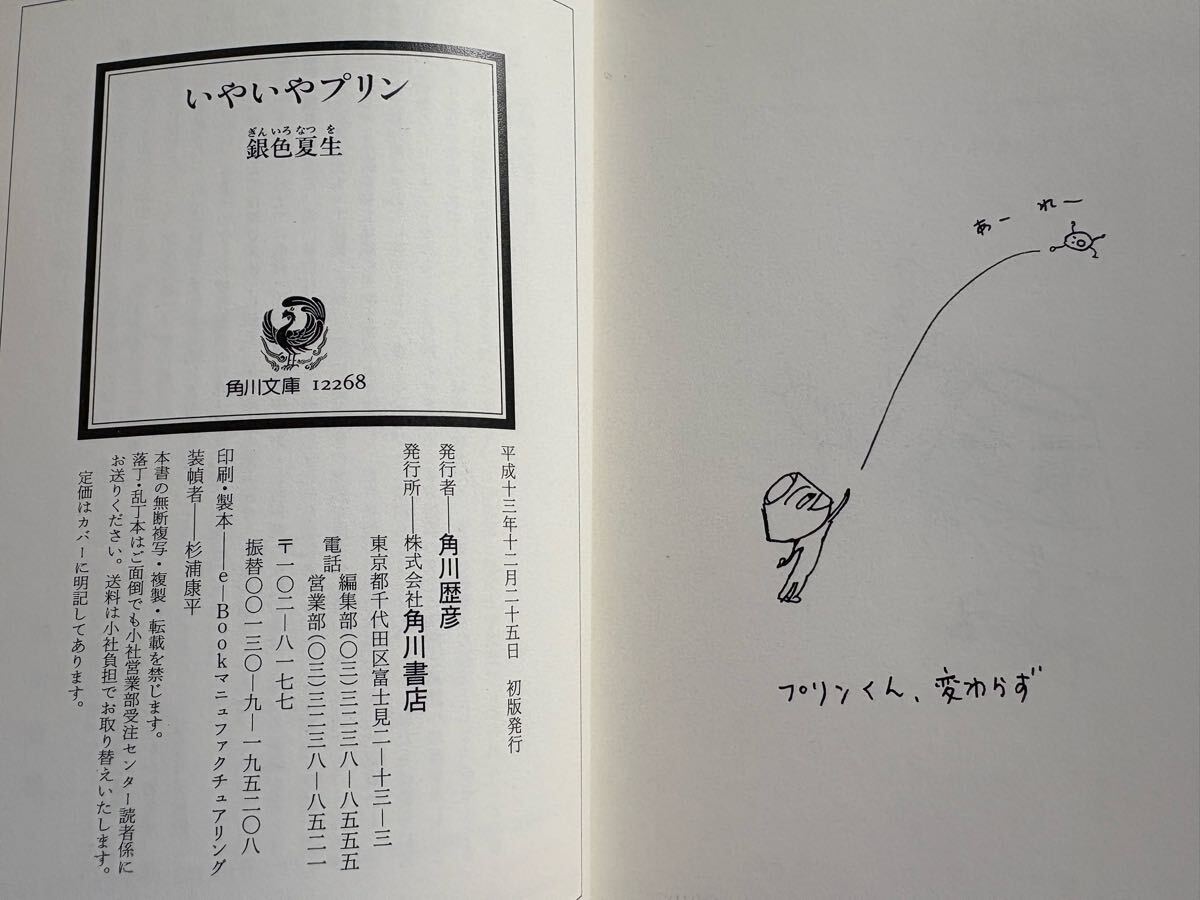 あー れー
プリンくん、変わらず
いやいやプリン
ぎんいろなつを
銀色夏生
角川文庫 12268
平成十三年十二月二十五日 初版発行
発行者――角川歴彦
発行所――株式会社角川書店
東京都千代田区富士見二―十三―三
電話 編集部(〇三)三二三八―八五五五
営業部(〇三)三二三八―八五二一
〒一〇二―八一七七
振替〇〇一三〇―九―一九五二〇八
印刷・製本――e―Bookマニュファクチュアリング
装幀者――杉浦康平
本書の無断複写・複製・転載を禁じます。
落丁・乱丁本はご面倒でも小社営業部受注センター読者係に
お送りください。送料は小社負担でお取り替えいたします。
定価はカバーに明記してあります。